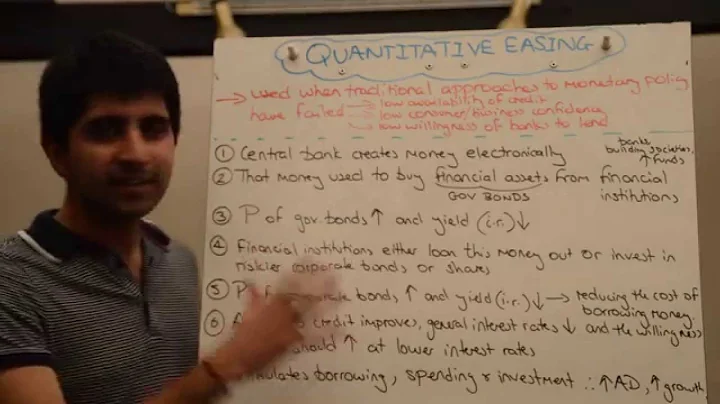 QUANTITATIVE EASING
→ used when traditional approaches to monetary policy
have failed → low availability of credit
→ low consumer/business confidence
→ low willingness of banks to lend
① Central bank creates money electronically
banks,
building societies,
↑ funds
② That money used to buy financial assets from financial
institutions
GOV BONDS
③ P of gov bonds ↑ and yield (i.r.) ↓
④ Financial institutions either loan this money out or invest in
riskier corporate bonds or shares
⑤ P bonds ↑ and yield (i.r.) ↓ → reducing the cost of
borrowing money.
⑥ credit improves, general interest rates ↓ and the willingness
should ↑ at lower interest rates
borrowing, spending & investment ∴ ↑ AD, ↑ growth